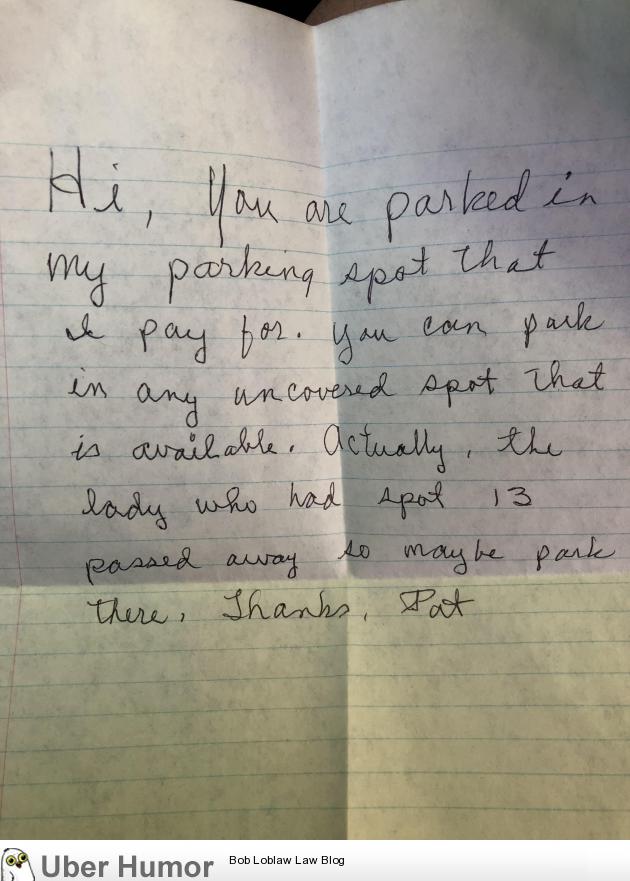 Hi, You are parked in
my parking spot that
I pay for. You can park
in any uncovered spot that
is available. Actually, the
lady who had spot 13
passed away so maybe park
there. Thanks, Pat
Uber Humor
Bob Loblaw Law Blog